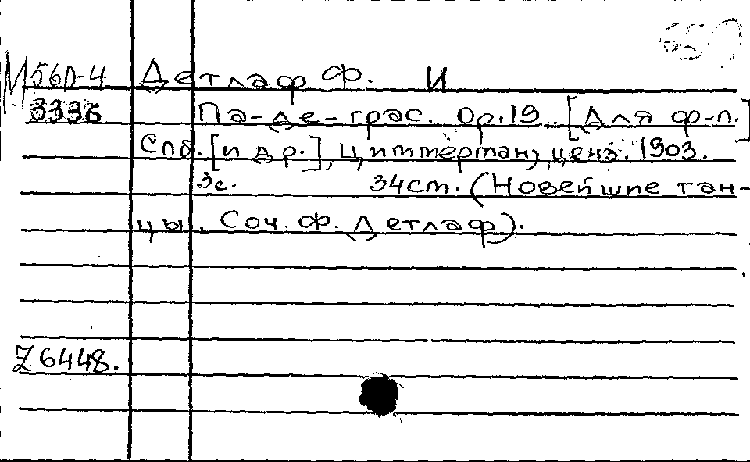 М560-4 Детлаф Ф. И
3336 Па-де-грас. Op.19. [Для ф-п.]
Спб. [и др.], Циммерман, ценз. 1903.
3с. 34см. (Новейшие тан-
цы. Соч. Ф. Детлаф).
Z6448.